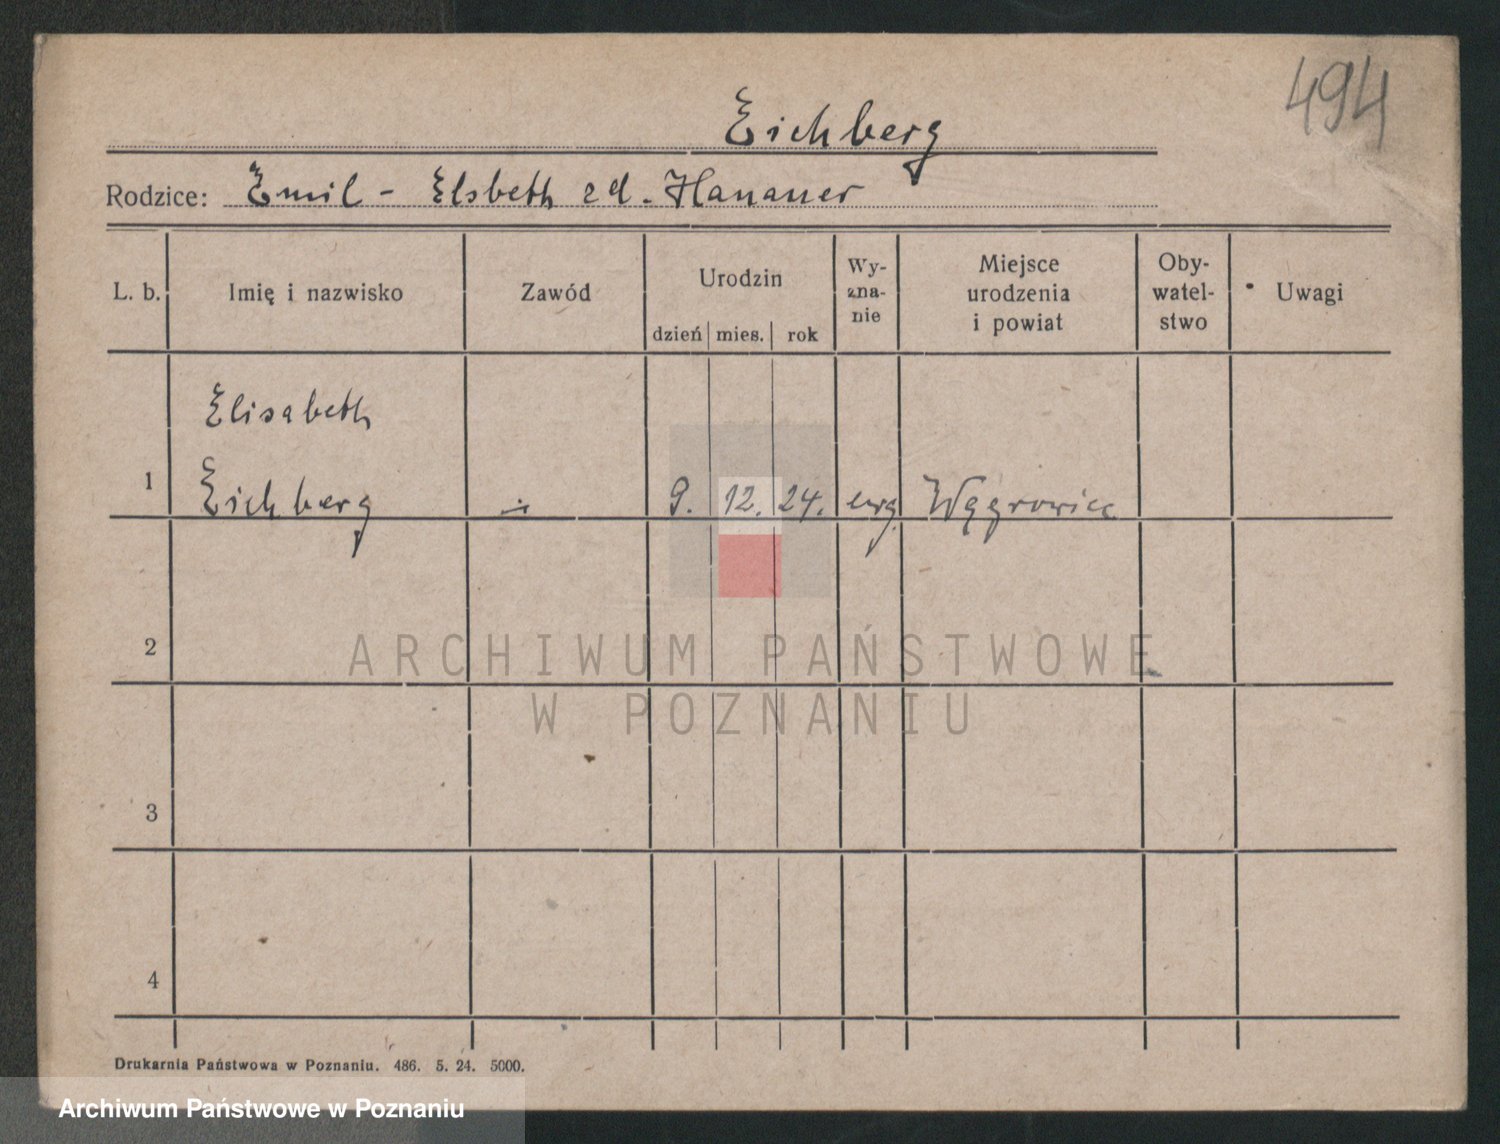 494
Eichberg
Rodzice: Emil - Elsbeth zd. Hanauer
L. b. Imię i nazwisko Zawód Urodzin dzień mies. rok Wy-zna-nie Miejsce urodzenia i powiat Oby-watel-stwo Uwagi
Elisabeth
1 Eichberg 9. 12. 24. ewg. Wągrowiec
2
ARCHIWUM PAŃSTWOWE
W POZNANIU
3
4
Drukarnia Państwowa w Poznaniu. 486. 5. 24. 5000.
Archiwum Państwowe w Poznaniu